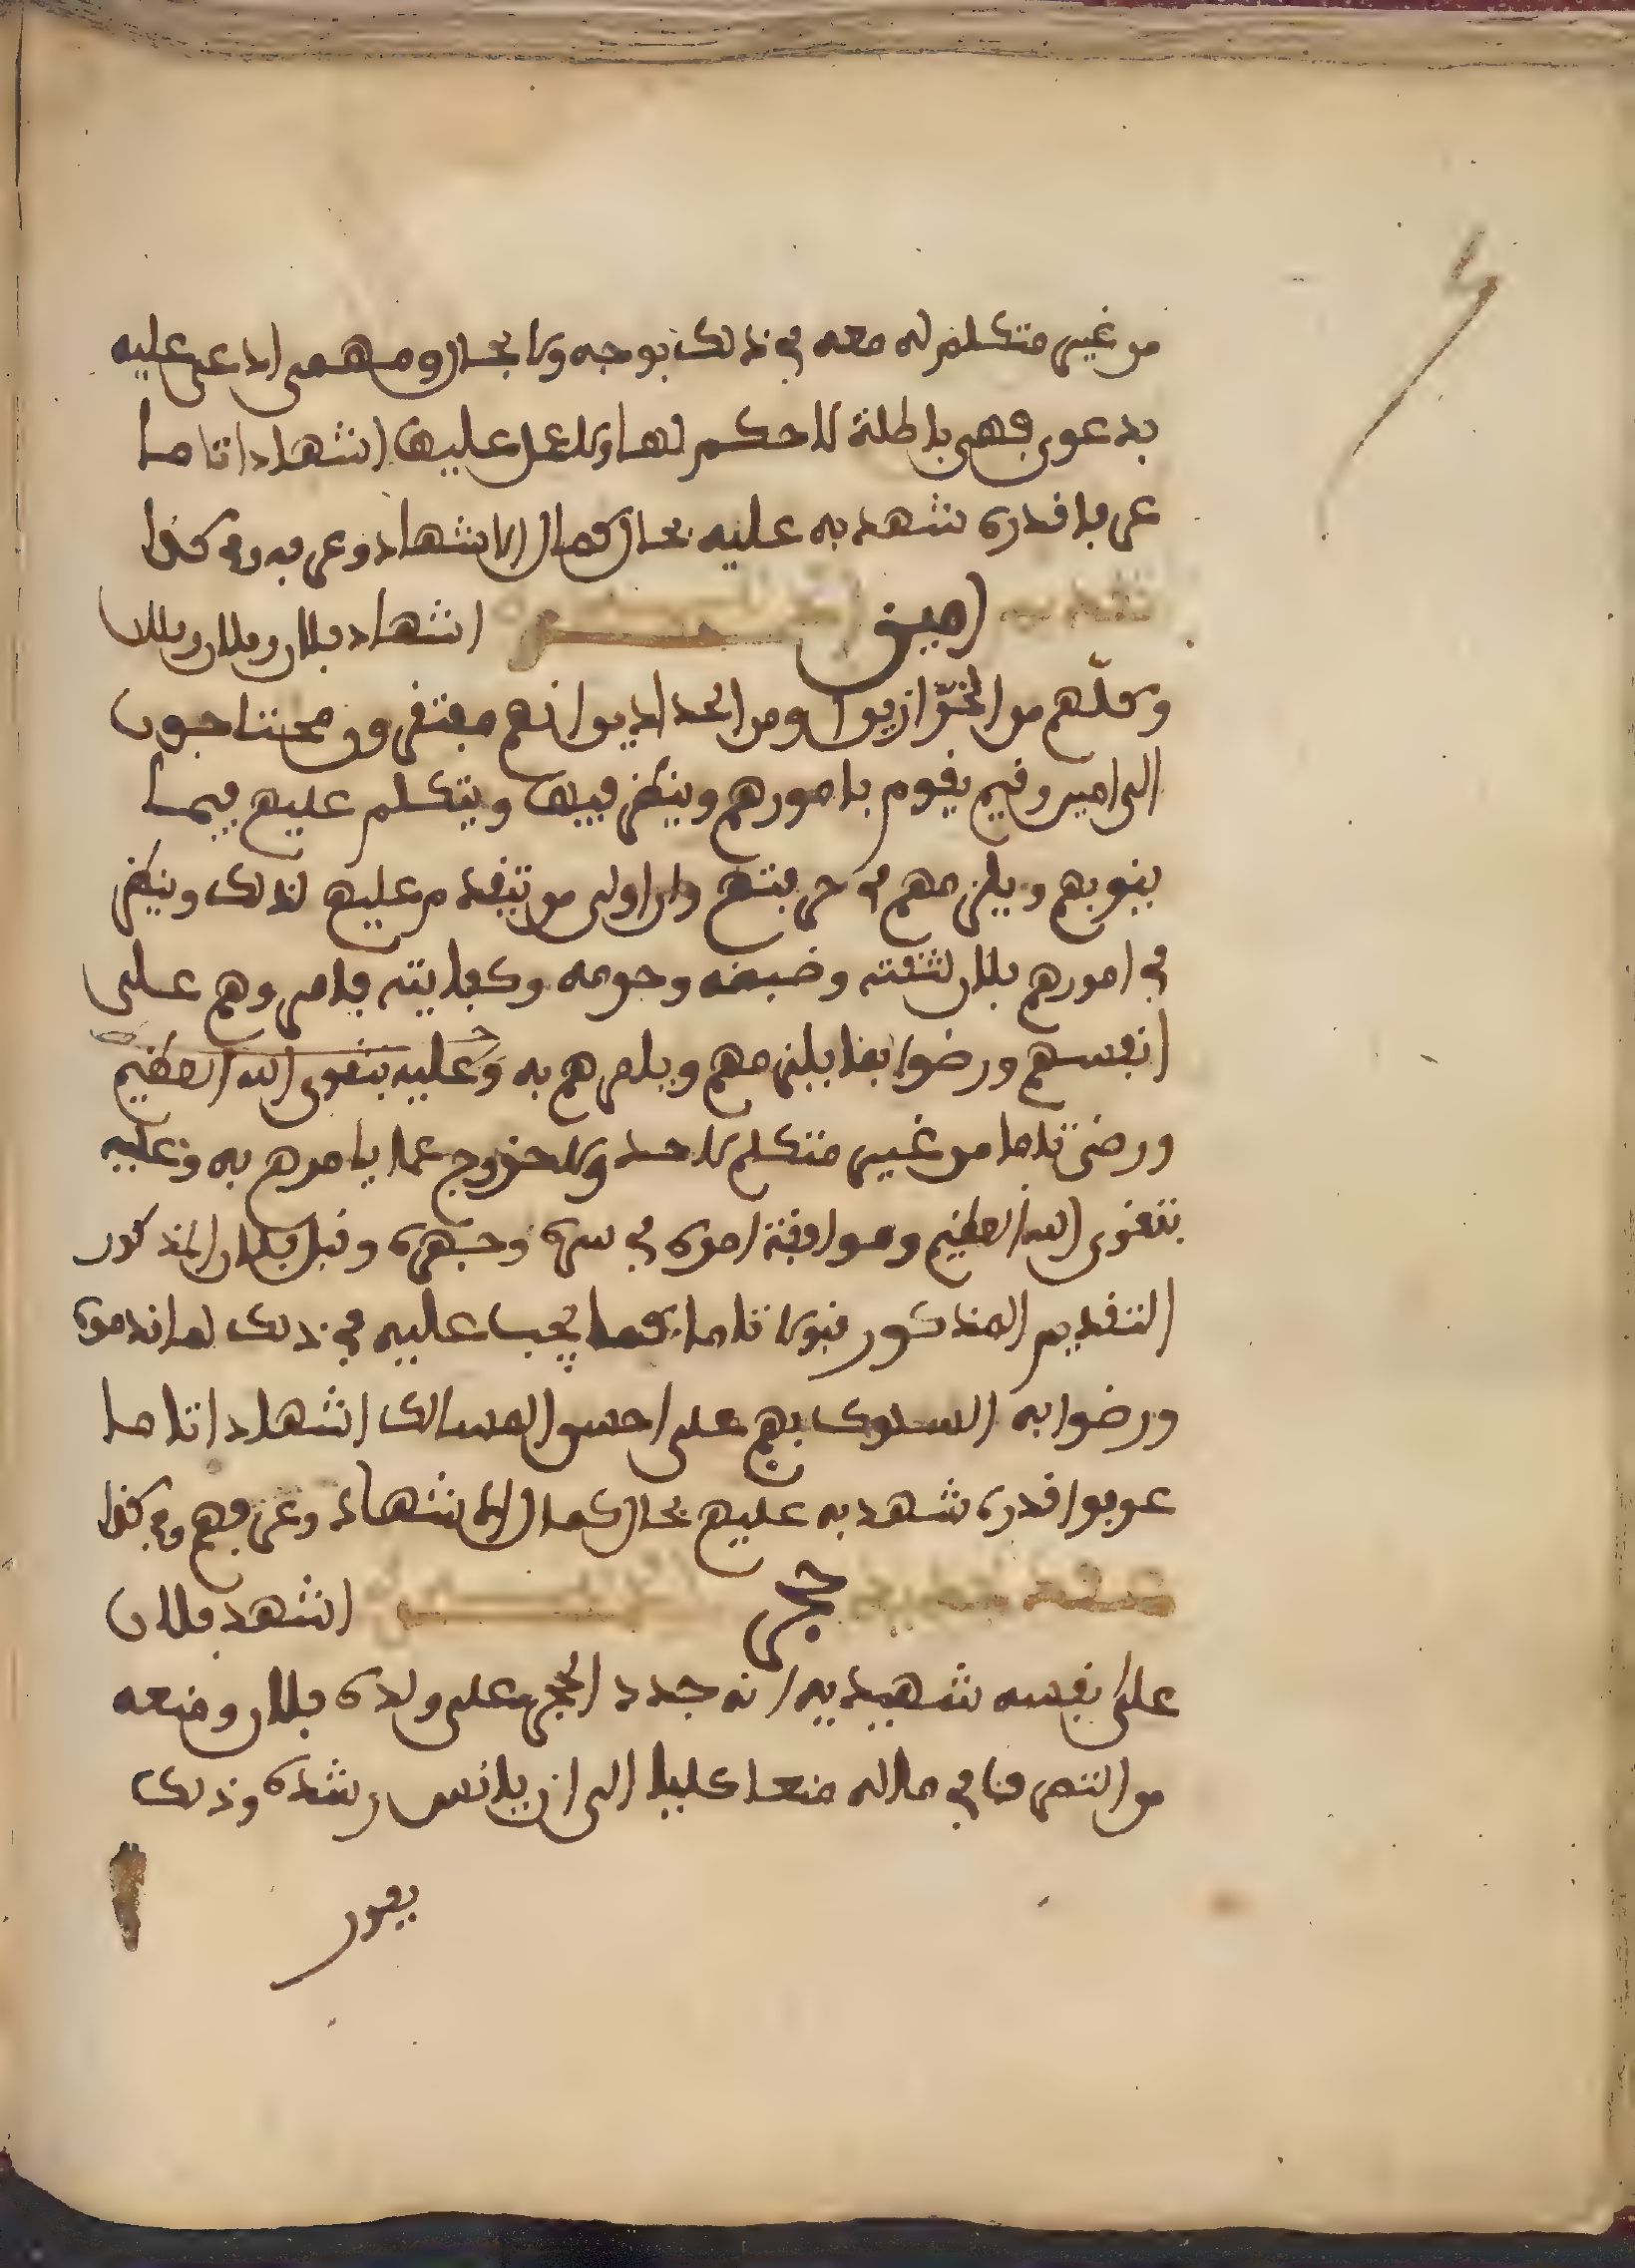 من غير متكلم له معه في ذلك بوجه ولا بحال ومهمى ادعى عليه
بدعوى فهي باطلة لا حكم لها ولا عمل عليها اشهادا تاما
عرفا قدره شهد به عليه بحال كمال الاشهاد وعرفه وفي كذا
تقديم امين اشهاد فلان وفلان وفلان
وكلهم من الخرازين او من الحدادين انهم مفتقرون محتاجون
الى امين وقيم يقوم بامورهم وينظر فيها ويتكلم عليهم فيما
ينوبهم ويلزمهم في حرفتهم وان اولى من تقدم عليهم لذلك وينظر
في امورهم فلان لثقته وضبطه وحزمه وكفايته فامروهم على
انفسهم ورضوا بما يلزمهم ويامرهم به وعليه بتقوى الله العظيم
ورضى تاما من غير متكلم لاحد ولا خروج عما يامرهم به وعليه
بتقوى الله العظيم ومراقبة امره في سره وجهره وقبل فلان المذكور
التقديم المذكور قبولا تاما كما يجب عليه في ذلك لما ندموه
ورضوا به السلوك بهم على احسن المسالك اشهادا تاما
عرفوا قدره شهد به عليهم بحال كمال الاشهاد وعرفهم وفي كذا
حجر اشهد فلان
على نفسه شهيديه انه جدد الحجر على ولده فلان ومنعه
من التصرف في ماله منعا كليا الى ان يانس رشده وذلك
بعور